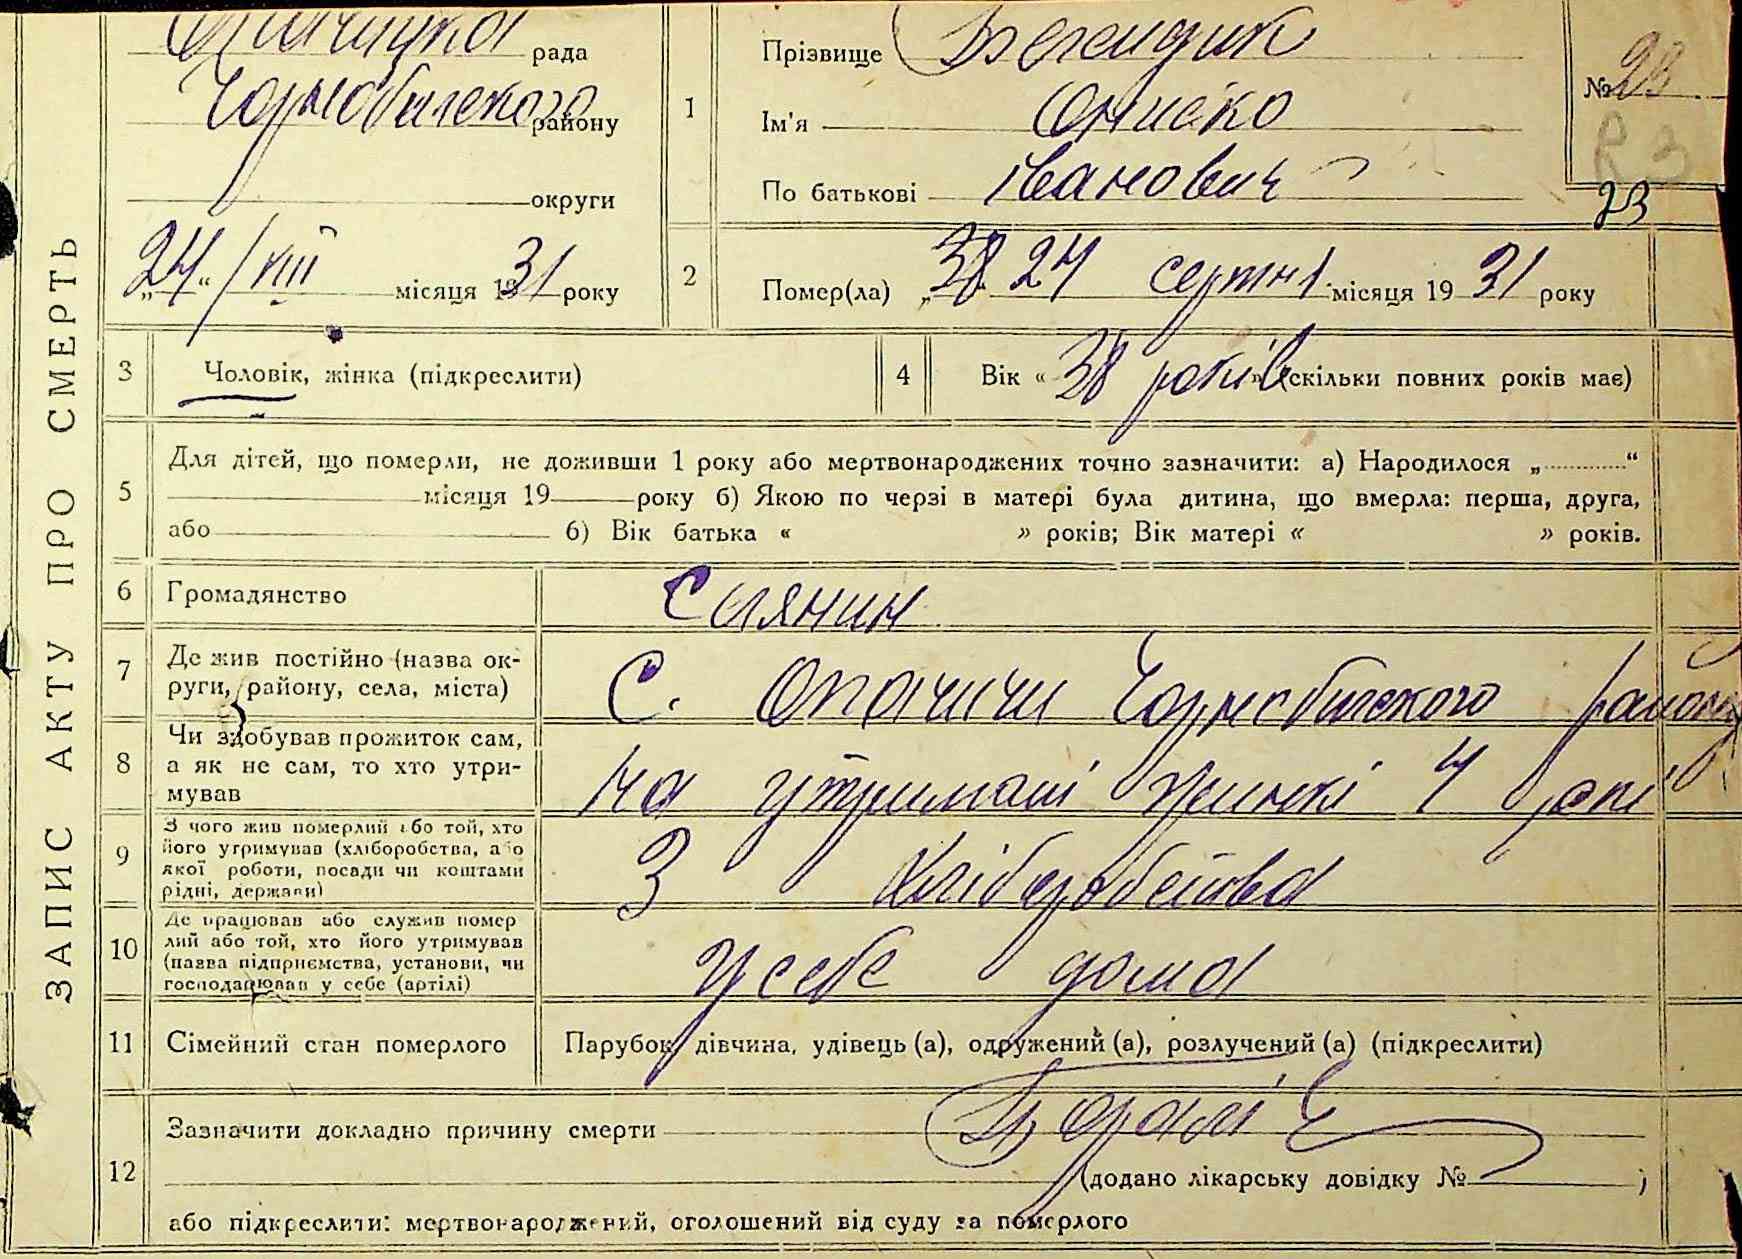 ЗАПИС АКТУ ПРО СМЕРТЬ
рада
Чорнобильского району
округи
„24“ /VIII місяця 1931 року
1
Прізвище
Ім'я Онисько
По батькові Іванович
№ 23
23
2
Помер(ла) „38 24 серпня місяця 1931 року
3
Чоловік, жінка (підкреслити)
4
Вік « 38 років » (скільки повних років має)
5
Для дітей, що померли, не доживши 1 року або мертвонароджених точно зазначити: а) Народилося „ “
місяця 19 року б) Якою по черзі в матері була дитина, що вмерла: перша, друга,
або б) Вік батька « » років; Вік матері « » років.
6
Громадянство
Силянин
7
Де жив постійно (назва ок-
руги, району, села, міста)
С. Опачичи Чорнобильского району
8
Чи здобував прожиток сам,
а як не сам, то хто утри-
мував
на утримані жинкі 4
9
З чого жив померлий або той, хто
його утримував (хліборобства, або
якої роботи, посади чи коштами
рідні, держави)
З Хліборобства
10
Де працював або служив помер
лий або той, хто його утримував
(назва підприємства, установи, чи
господарював у себе (артілі)
у себе дома
11
Сімейний стан померлого
Парубок, дівчина, удівець (а), одружений (а), розлучений (а) (підкреслити)
12
Зазначити докладно причину смерти
(додано лікарську довідку № )
або підкреслити: мертвонароджений, оголошений від суду за померлого